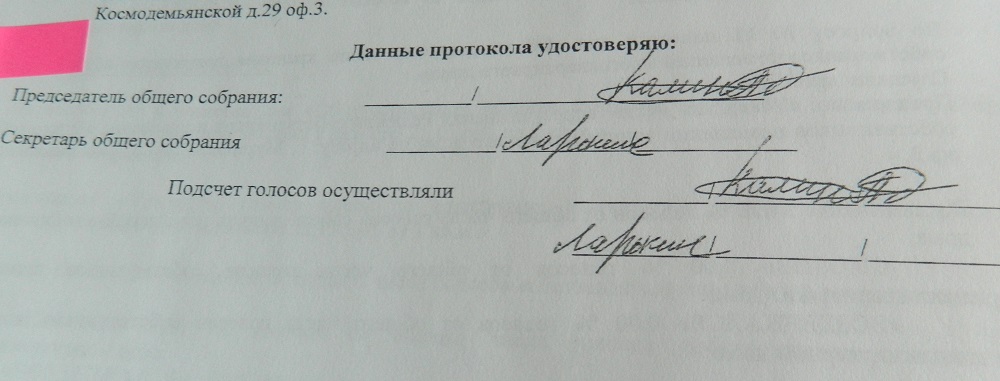 Космодемьянской д.29 оф.3.
Данные протокола удостоверяю:
Председатель общего собрания: / Калинов
Секретарь общего собрания / Ларькин /
Подсчет голосов осуществляли Калинов
Ларькин / /